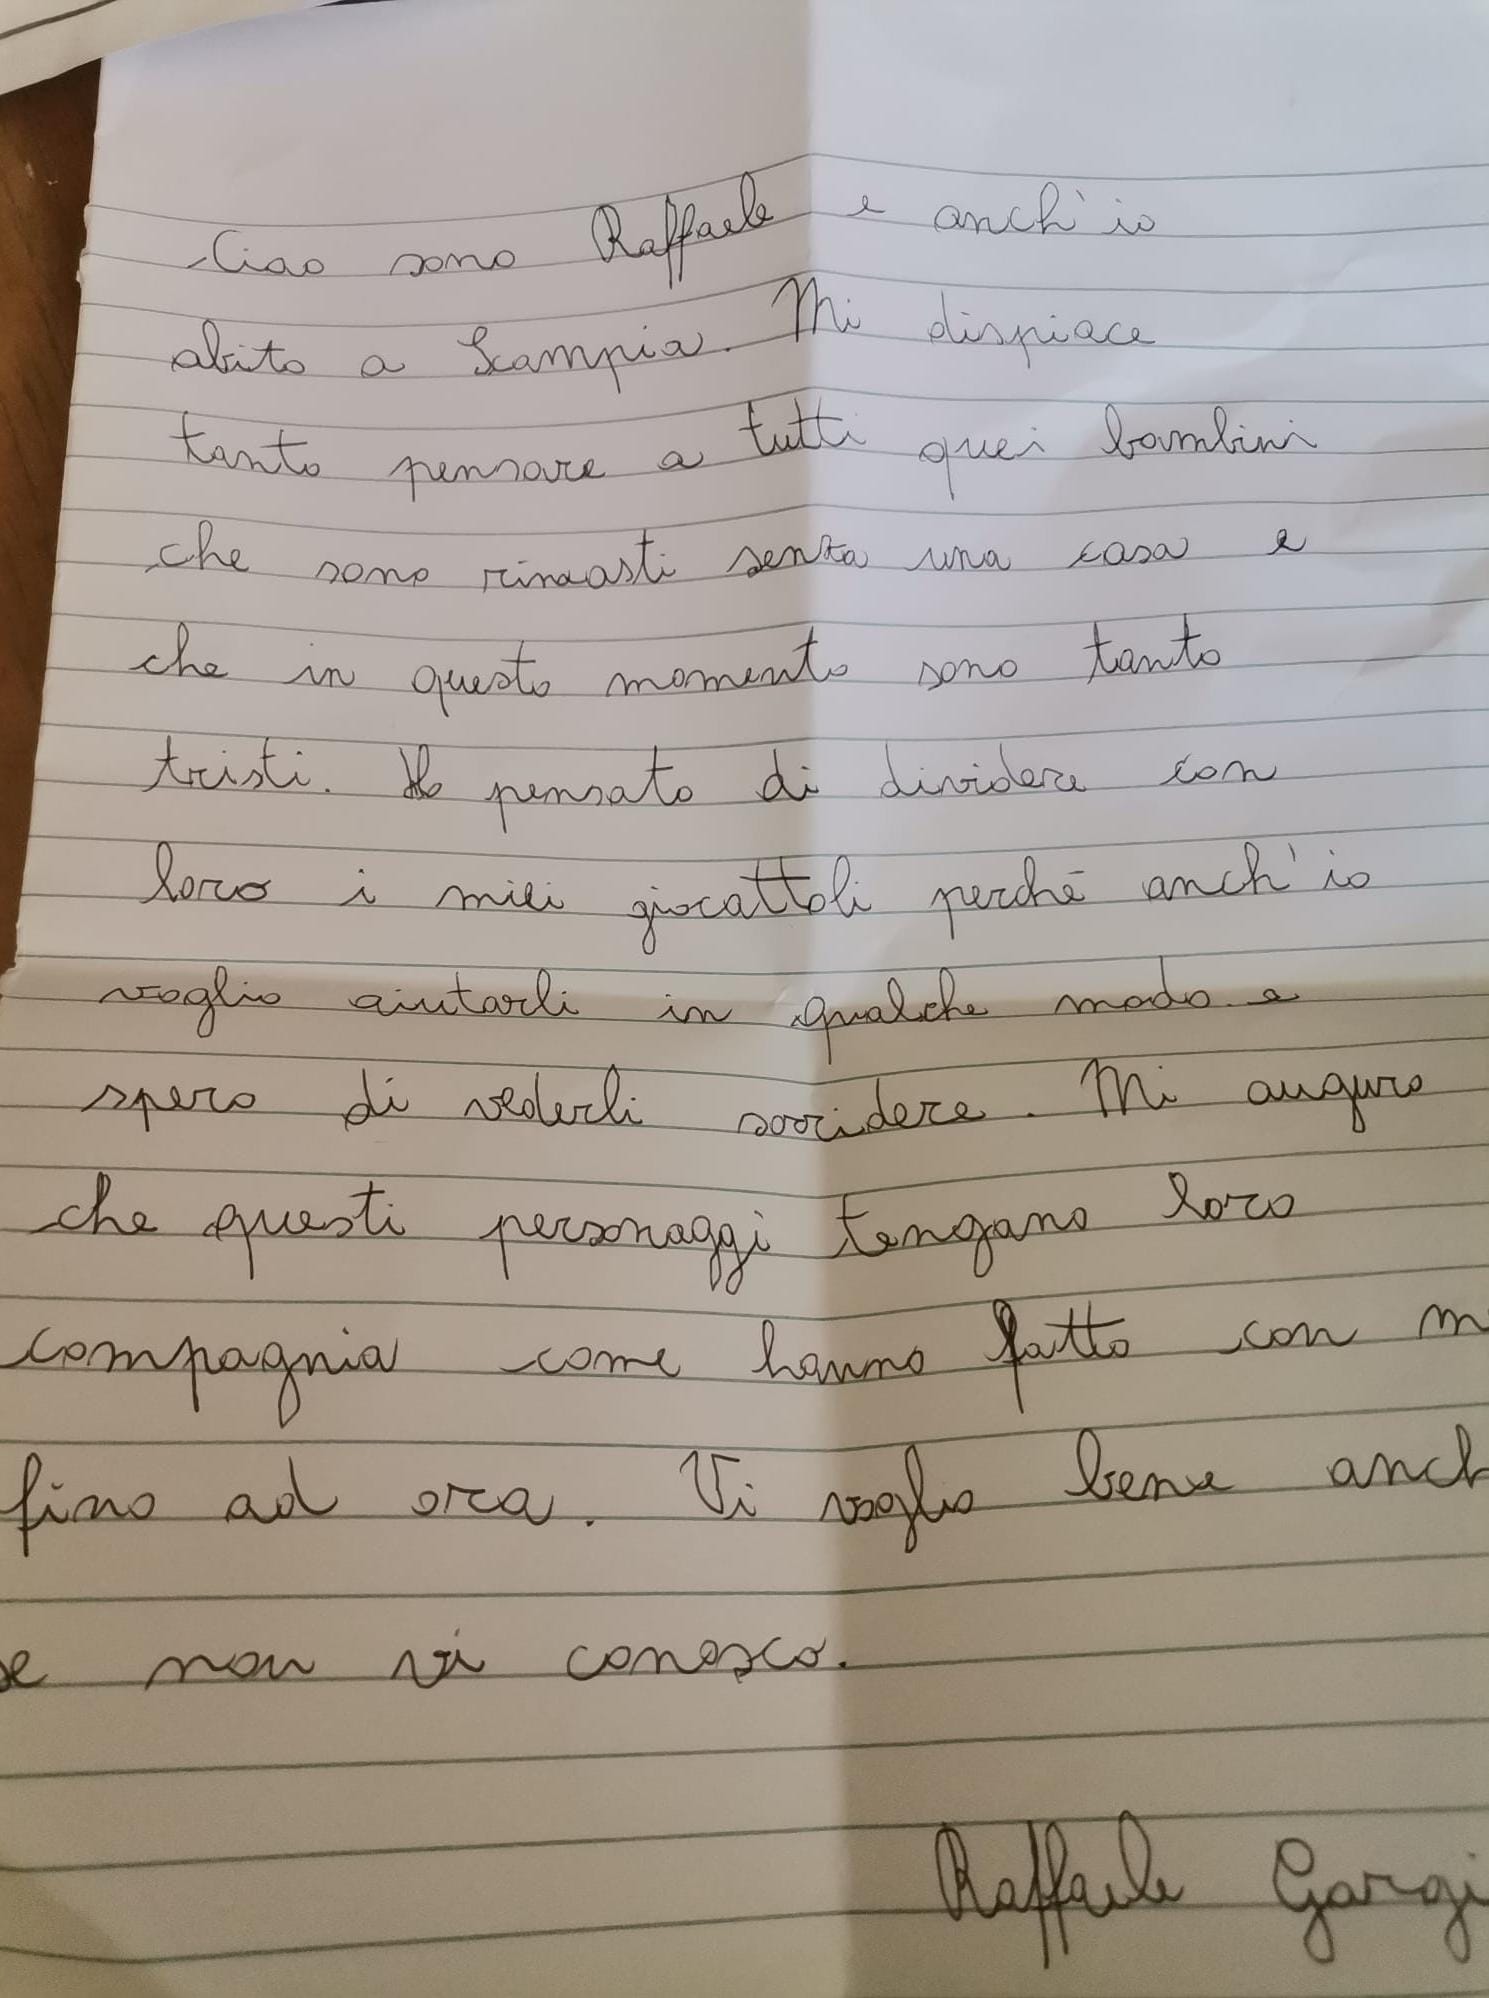 Ciao sono Raffaele e anch'io
abito a Scampia. Mi dispiace
tanto pensare a tutti quei bambini
che sono rimasti senza una casa e
che in questo momento sono tanto
tristi. Ho pensato di dividere con
loro i miei giocattoli perché anch'io
voglio aiutarli in qualche modo e
spero di vederli sorridere. Mi auguro
che questi personaggi tengano loro
compagnia come hanno fatto con m
fino ad ora. Vi voglio bene anch
se non vi conosco.
Raffaele Gargi